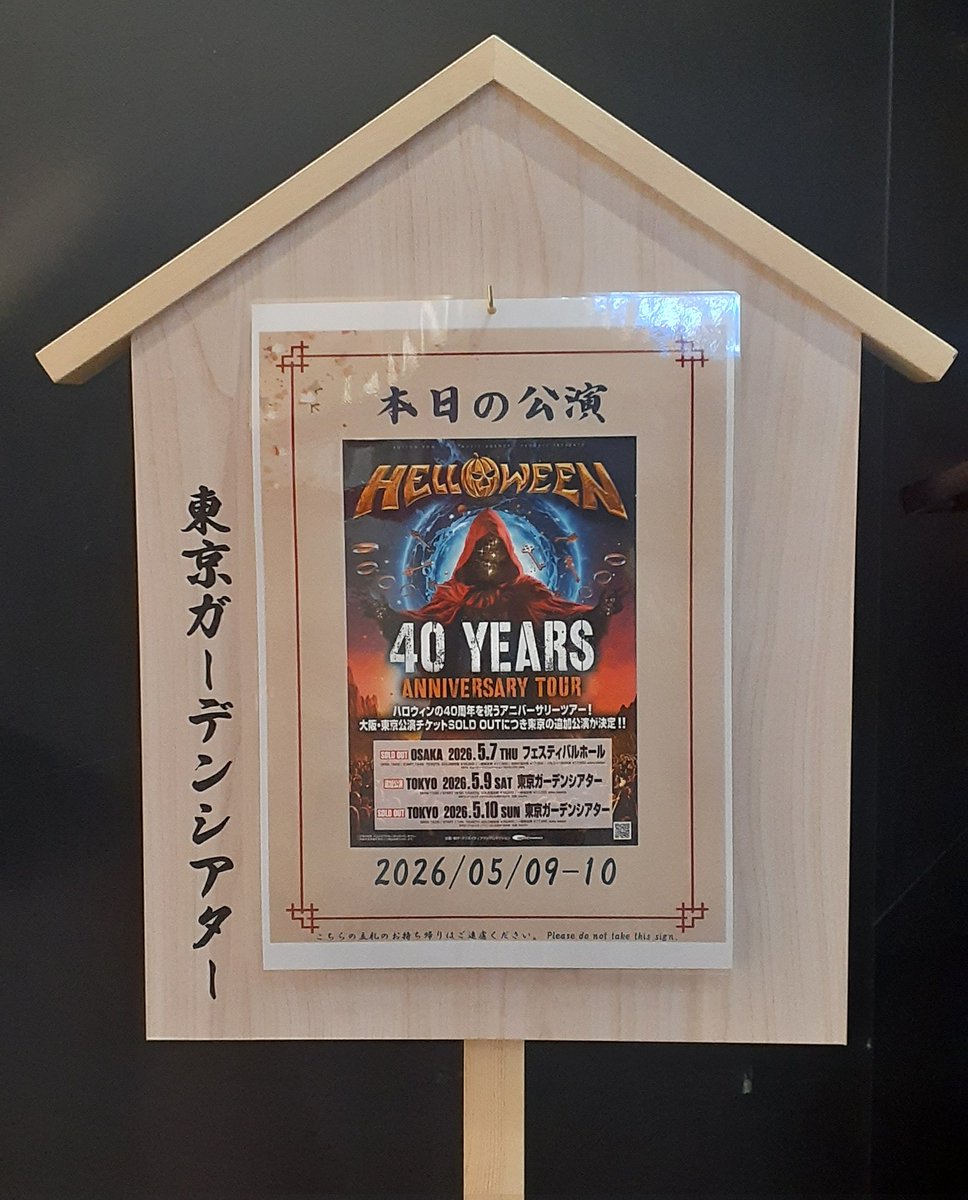 本日の公演
HELLOWEEN
40 YEARS
ANNIVERSARY TOUR
ハロウィンの40周年を祝うアニバーサリーツアー!
大阪・東京公演チケットSOLD OUTにつき東京の追加公演が決定!!
SOLD OUT OSAKA 2026.5.7 THU フェスティバルホール
TOKYO 2026.5.9 SAT 東京ガーデンシアター
SOLD OUT TOKYO 2026.5.10 SUN 東京ガーデンシアター
2026/05/09-10
こちらの立札のお持ち帰りはご遠慮ください。 Please do not take this sign.
東京ガーデンシアター